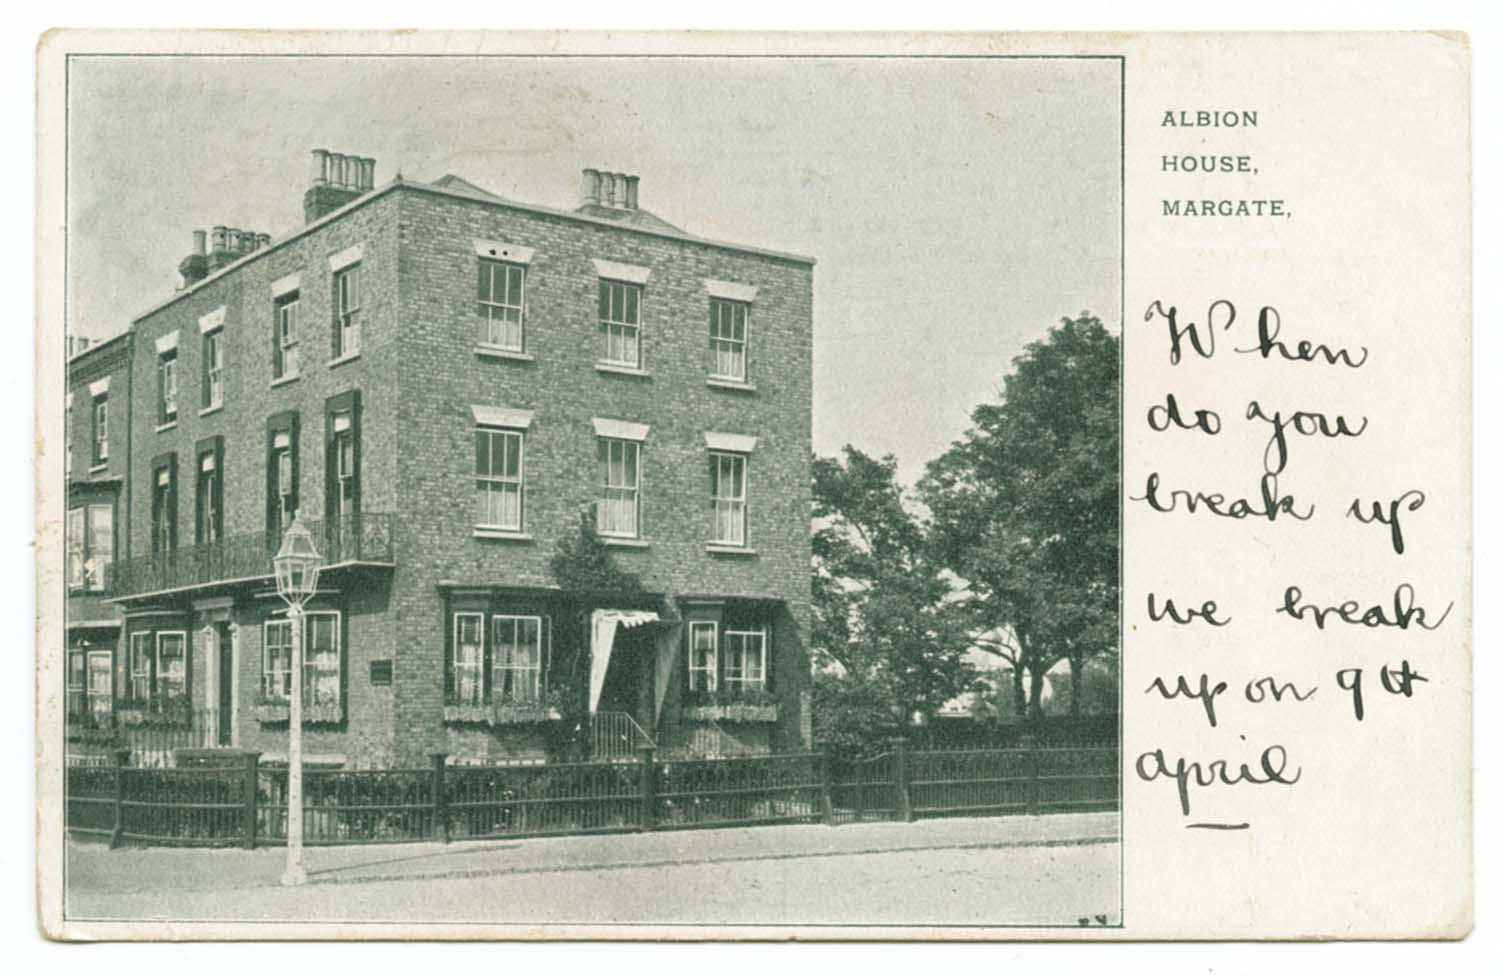 ALBION
HOUSE,
MARGATE,
When
do you
break up
we break
up on 9th
april